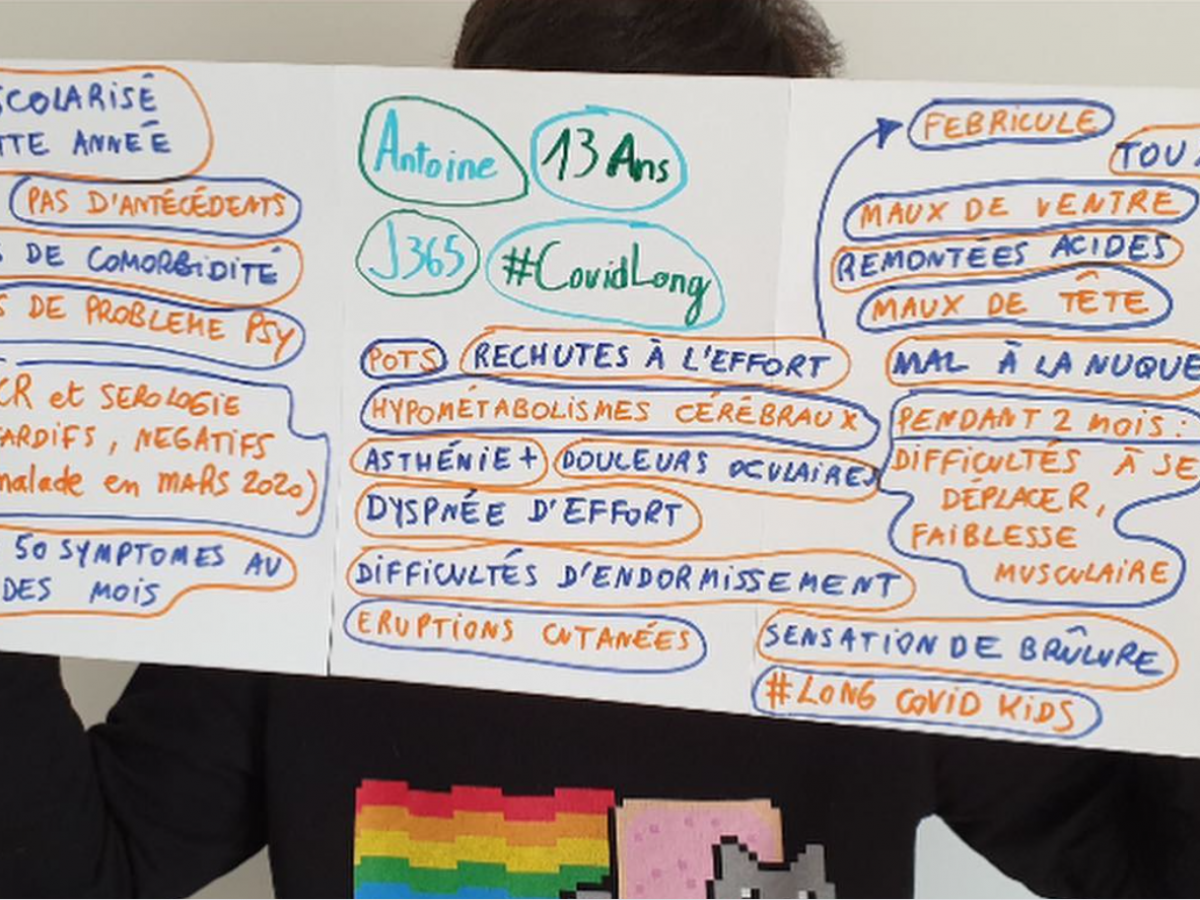 SCOLARISÉ
TTE ANNÉE
PAS D'ANTÉCÉDENTS
DE COMORBIDITÉ
DE PROBLEME PSY
CR et SEROLOGIE
TARDIFS, NEGATIFS
malade en MARS 2020)
50 SYMPTOMES AU
DES MOIS
Antoine 13 Ans
J365 #CovidLong
POTS RECHUTES À L'EFFORT
HYPOMÉTABOLISMES CÉRÉBRAUX
ASTHÉNIE+ DOULEURS OCULAIRES
DYSPNÉE D'EFFORT
DIFFICULTÉS D'ENDORMISSEMENT
ERUPTIONS CUTANÉES
FEBRICULE
TOU
MAUX DE VENTRE
REMONTÉES ACIDES
MAUX DE TÊTE
MAL À LA NUQUE
PENDANT 2 MOIS:
DIFFICULTÉS À SE
DÉPLACER,
FAIBLESSE
MUSCULAIRE
SENSATION DE BRÛLURE
#LONG COVID KIDS